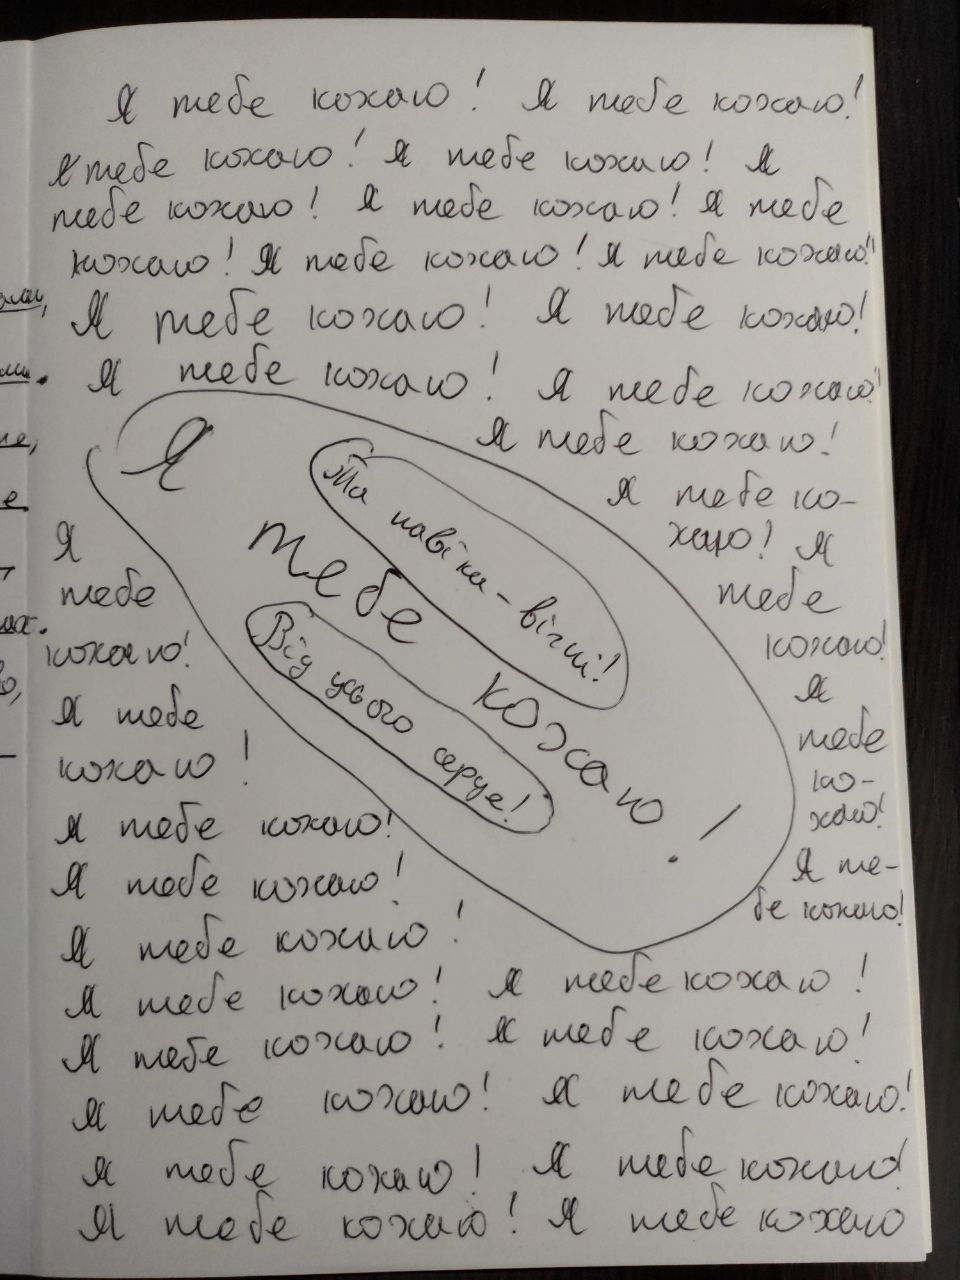 Я тебе кохаю! Я тебе кохаю!
Я тебе кохаю! Я тебе кохаю! Я
тебе кохаю! Я тебе кохаю! Я тебе
кохаю! Я тебе кохаю! Я тебе кохаю!
Я тебе кохаю! Я тебе кохаю!
Я тебе кохаю! Я тебе кохаю!
Я тебе кохаю!
Я тебе ко-
хаю! Я
тебе
кохаю!
Я
тебе
ко-
хаю!
Я те-
бе кохаю!
Я
тебе
кохаю!
Та навіки-вічні!
Від усього серце!
Я
тебе
кохаю!
Я тебе
кохаю!
Я тебе кохаю!
Я тебе кохаю!
Я тебе кохаю!
Я тебе кохаю! Я тебе кохаю!
Я тебе кохаю! Я тебе кохаю!
Я тебе кохаю! Я тебе кохаю!
Я тебе кохаю! Я тебе кохаю!
Я тебе кохаю! Я тебе кохаю